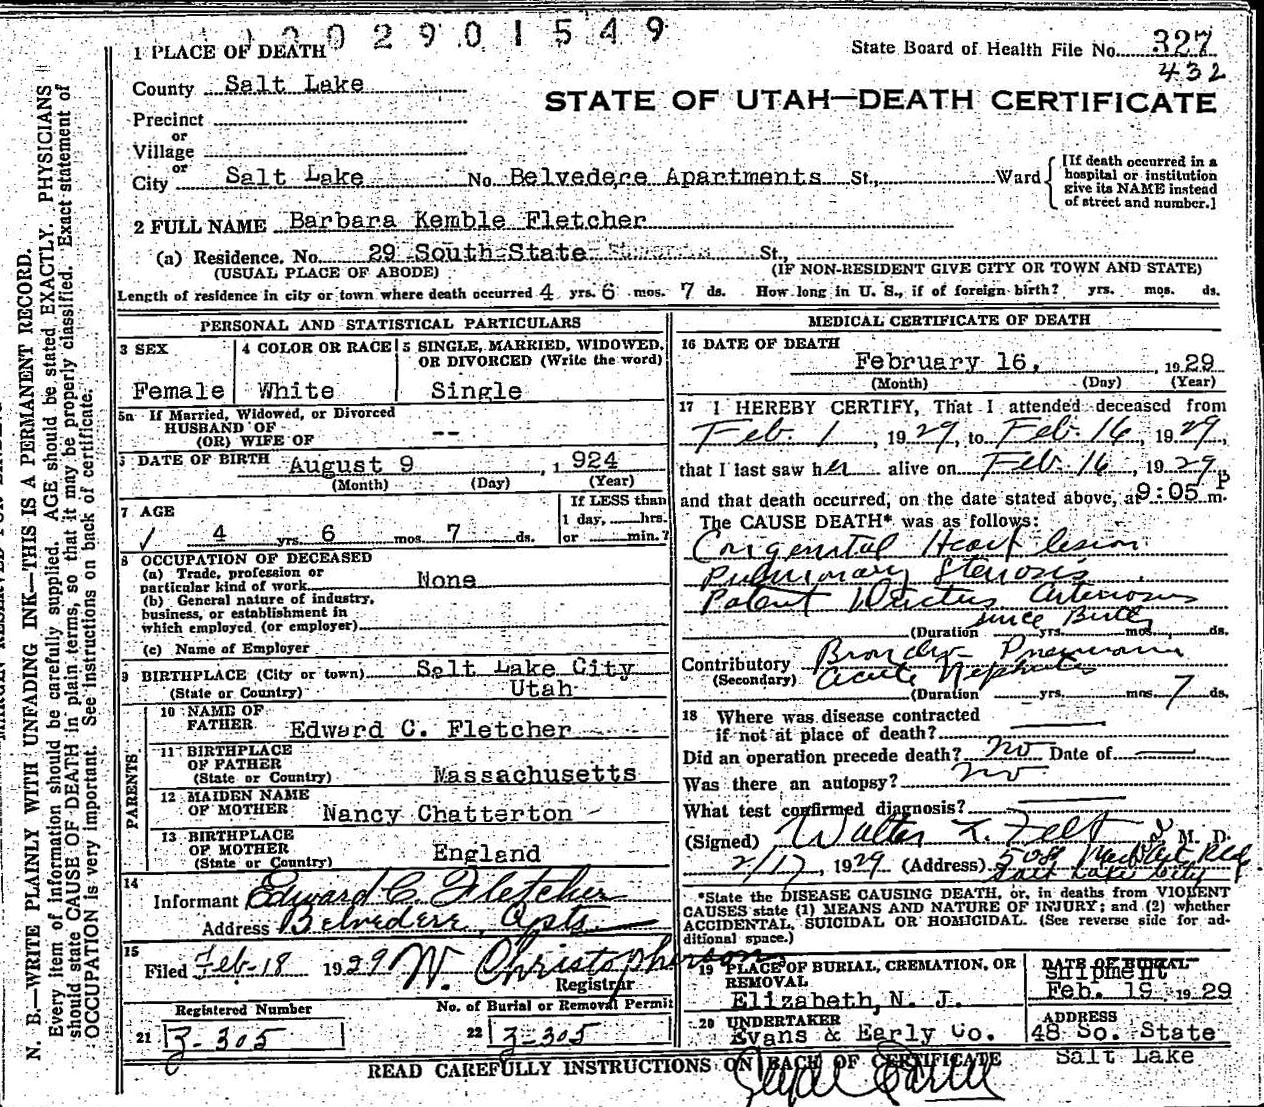 0 2 9 0 1 5 4 9
1 PLACE OF DEATH
State Board of Health File No. 327
432
County Salt Lake
STATE OF UTAH—DEATH CERTIFICATE
Precinct
or
Village
or
City Salt Lake No. Belvedere Apartments St., Ward
[If death occurred in a hospital or institution give its NAME instead of street and number.]
2 FULL NAME Barbara Kemble Fletcher
(a) Residence. No. 29 South State St.,
(USUAL PLACE OF ABODE) (IF NON-RESIDENT GIVE CITY OR TOWN AND STATE)
Length of residence in city or town where death occurred 4 yrs. 6 mos. 7 ds. How long in U. S., if of foreign birth? yrs. mos. ds.
PERSONAL AND STATISTICAL PARTICULARS
3 SEX
Female
4 COLOR OR RACE
White
5 SINGLE, MARRIED, WIDOWED, OR DIVORCED (Write the word)
Single
5a If Married, Widowed, or Divorced
HUSBAND OF
(OR) WIFE OF --
6 DATE OF BIRTH August 9, 1924
(Month) (Day) (Year)
7 AGE
4 yrs. 6 mos. 7 ds.
If LESS than
1 day, hrs.
or min.?
8 OCCUPATION OF DECEASED
(a) Trade, profession or
particular kind of work None
(b) General nature of industry,
business, or establishment in
which employed (or employer)
(c) Name of Employer
9 BIRTHPLACE (City or town) Salt Lake City
(State or Country) Utah
PARENTS
10 NAME OF
FATHER Edward C. Fletcher
11 BIRTHPLACE
OF FATHER
(State or Country) Massachusetts
12 MAIDEN NAME
OF MOTHER Nancy Chatterton
13 BIRTHPLACE
OF MOTHER
(State or Country) England
14
Informant Edward C. Fletcher
Address Belvedere Apts
15
Filed Feb-18 1929 W. Christopherson
Registrar
Registered Number
21 3-305
No. of Burial or Removal Permit
22 3-305
MEDICAL CERTIFICATE OF DEATH
16 DATE OF DEATH
February 16, 1929
(Month) (Day) (Year)
17 I HEREBY CERTIFY, That I attended deceased from
Feb. 1, 1929, to Feb. 16, 1929,
that I last saw her alive on Feb. 16, 1929
and that death occurred, on the date stated above, at 9:05 P m.
The CAUSE DEATH* was as follows:
Congenital Heart lesion
Pulmonary Stenosis
Patent Ductus Arteriosus
since Birth
(Duration yrs. mos., ds.
Contributory Broncho-Pneumonia
(Secondary) acute Nephritis
(Duration yrs. mos. 7 ds.
18 Where was disease contracted
if not at place of death?
Did an operation precede death? no Date of
Was there an autopsy? no
What test confirmed diagnosis?
(Signed) Walter L. Felt M. D.
2/17, 1929 (Address) 508
Salt Lake City
*State the DISEASE CAUSING DEATH, or, in deaths from VIOLENT
CAUSES state (1) MEANS AND NATURE OF INJURY; and (2) whether
ACCIDENTAL, SUICIDAL OR HOMICIDAL. (See reverse side for ad-
ditional space.)
19 PLACE OF BURIAL, CREMATION, OR
REMOVAL
Elizabeth, N. J.
DATE OF BURIAL
Shipment
Feb. 19 1929
20 UNDERTAKER
Evans & Early Co.
ADDRESS
48 So. State
Salt Lake
READ CAREFULLY INSTRUCTIONS ON BACK OF CERTIFICATE
N. B.—WRITE PLAINLY WITH UNFADING INK—THIS IS A PERMANENT RECORD.
Every item of information should be carefully supplied. AGE should be stated EXACTLY. PHYSICIANS
should state CAUSE OF DEATH in plain terms, so that it may be properly classified. Exact statement of
OCCUPATION is very important. See instructions on back of certificate.